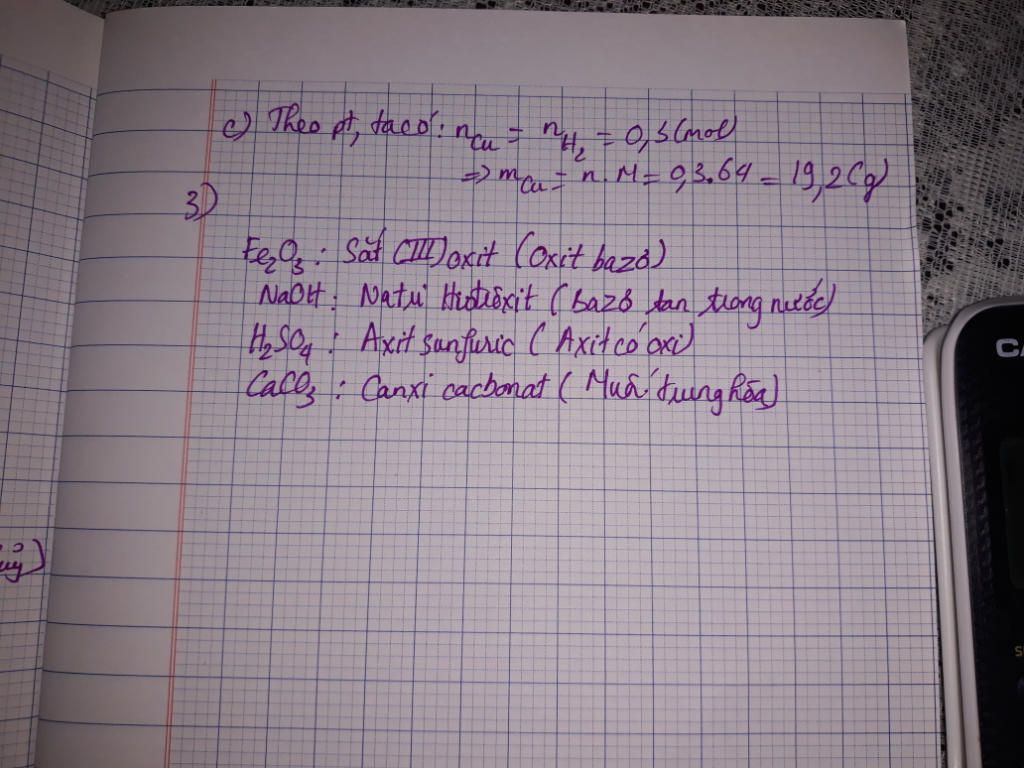 c) Theo pt, ta có: nCu = nH₂ = 0,3 (mol)
=> mCu = n.M = 0,3.64 = 19,2 (g)
3)
Fe₂O₃: Sắt (III) oxit (Oxit bazơ)
NaOH: Natri Hiđrôxit (bazơ tan trong nước)
H₂SO₄: Axit sunfuric (Axit có oxi)
CaCO₃: Canxi cacbonat (Muối trung hòa)
CA
S